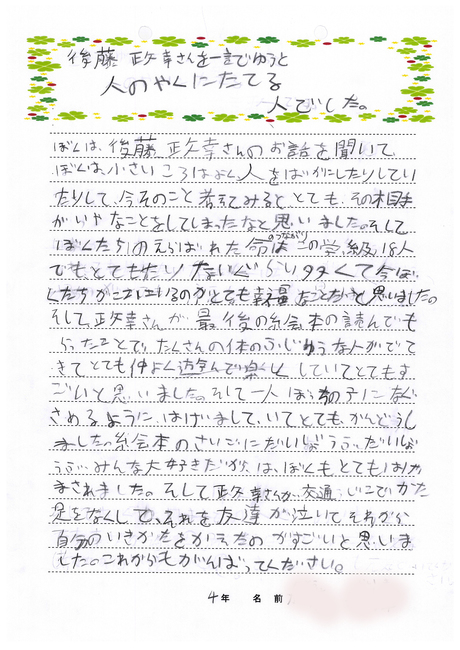 後藤 政幸さんを一言でゆうと
人のやくにたてる
人でした。
ぼくは、後藤 政幸さんのお話を聞いて
ぼくは小さいころはよく人をばかにしたりしてい
たりして、今そのこと考えてみるととても、その相手
がいやなことをしてしまったなと思いました。そして
ぼくたちのえらばれた命
のつながり
はこの学級18人
でもとてもたり
くらい多くて今ぼ
くたちがここにいるのがとても幸運なことだと思いました。
そして政幸さんが最後の絵本の読んでも
らったことで、たくさんの体のふじゆうな人がでて
きてとても仲よく遊んで楽しくしていてとてもす
ごいと思いました。そして一人ぼっちの子になぐ
さめるように、はげまして、いてとても、かんどうし
ました。絵本のさいごにだいじょうぶ、だいじょ
うぶ、みんな大好きだが、は、ぼくもとてもはげ
まされました。そして政幸さんが、交通じこでかた
足をなくして、それを友達が泣いてそれから
自分のいきかたをかえたのがすごいと思いま
した。これからもがんばってください。
4年 名前